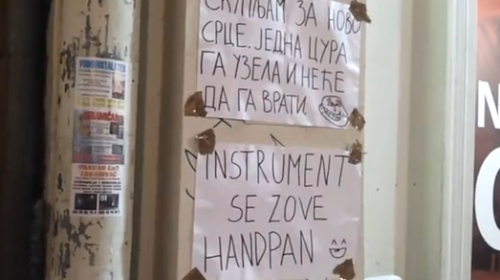 СКУПЉАМ ЗА НОВО
СРЦЕ. ЈЕДНА ЦУРА
ГА УЗЕЛА И НЕЋЕ
ДА ГА ВРАТИ.
INSTRUMENT
SE ZOVE
HANDPAN
N